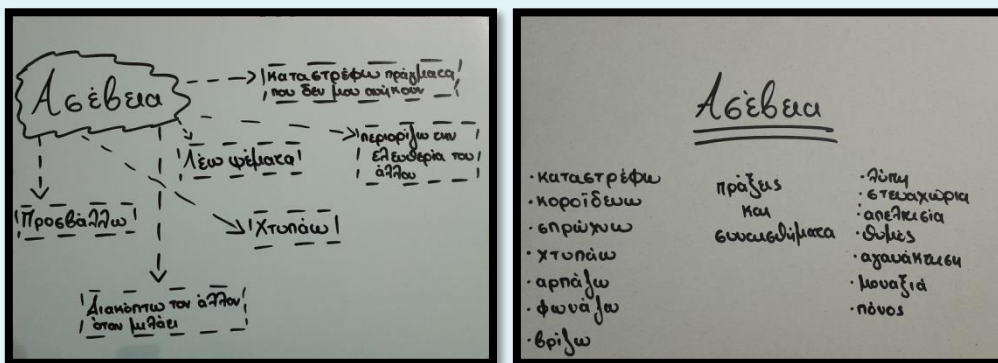 Ασέβεια
καταστρέφω πράγματα
που δεν μου ανήκουν
περιορίζω την
ελευθερία του
άλλου
Λέω ψέματα
Προσβάλλω
Χτυπάω
Διακόπτω τον άλλον
όταν μιλάει
Ασέβεια
·καταστρέφω
·κοροϊδεύω
·σπρώχνω
·χτυπάω
·αρπάζω
·φωνάζω
·βρίζω
πράξεις
και
συναισθήματα
·λύπη
·στεναχώρια
·απελπισία
·θυμός
·αγανάκτηση
·μοναξιά
·πόνος